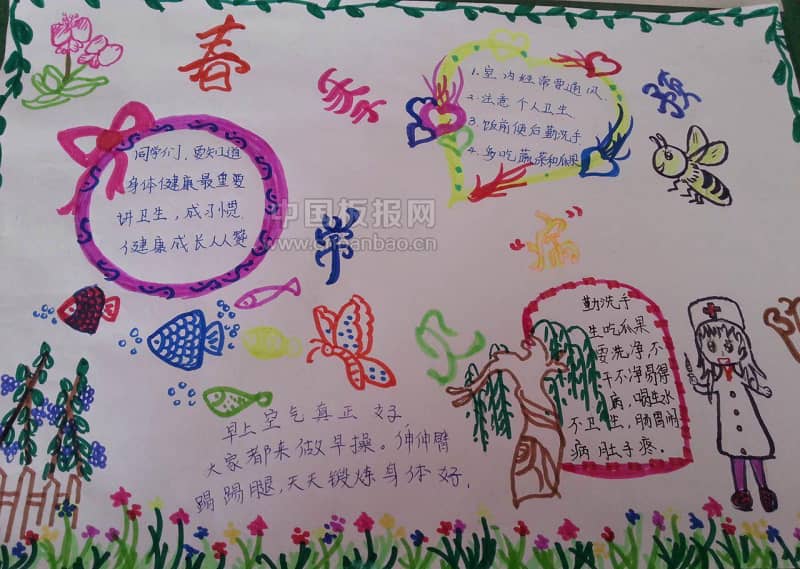 春
季
学
预
防
1. 室内经常要通风
2. 注意个人卫生
3. 饭前便后勤洗手
4. 多吃蔬菜和瓜果
同学们, 要知道
身体健康最重要
讲卫生, 成习惯
健康成长人人赞
中国板报网
勤洗手
生吃瓜果
要洗净, 不
干不净易得
病, 喝生水
不卫生, 肠胃闹
病肚子疼.
早上空气真正好
大家都来做早操。伸伸臂
踢踢腿, 天天锻炼身体好.